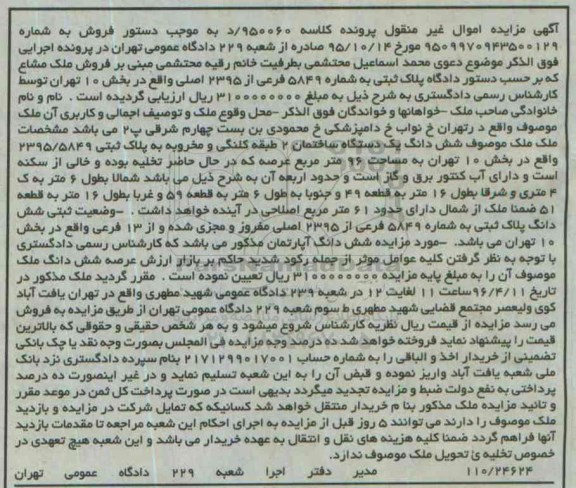 آگهی مزایده اموال غیر منقول پرونده کلاسه 950060/د به موجب دستور فروش به شماره
9509970943500129 مورخ 95/10/14 صادره از شعبه 229 دادگاه عمومی تهران در پرونده اجرایی
فوق الذکر موضوع دعوی محمد اسماعیل محتشمی بطرفیت خانم رقیه محتشمی مبنی بر فروش ملک مشاع
که بر حسب دستور دادگاه پلاک ثبتی به شماره 5849 فرعی از 2395 اصلی واقع در بخش 10 تهران توسط
کارشناس رسمی دادگستری به شرح ذیل به مبلغ 3100000000 ریال ارزیابی گردیده است . نام و نام
خانوادگی صاحب ملک -خواهانها و خواندگان فوق الذکر -محل وقوع ملک و توصیف اجمالی و کاربری آن ملک
موصوف واقع د رتهران خ نواب خ دامپزشکی خ محمودی بن بست چهارم شرقی پ2 می باشد مشخصات
ملک ملک موصوف شش دانگ یک دستگاه ساختمان 2 طبقه کلنگی و مخروبه به پلاک ثبتی 2395/5849
واقع در بخش 10 تهران به مساحت 96 متر مربع عرصه که در حال حاضر تخلیه بوده و خالی از سکنه
است و دارای آب کنتور برق و گاز است و حدود اربعه آن به شرح ذیل می باشد شمالا بطول 6 متر به ک
4 متری و شرقا بطول 16 متر به قطعه 49 و جنوبا به طول 6 متر به قطعه 59 و غربا بطول 16 متر به قطعه
51 ضمنا ملک از شمال دارای حدود 61 متر مربع اصلاحی در آینده خواهد داشت . -وضعیت ثبتی شش
دانگ پلاک ثبتی به شماره 5849 فرعی از 2395 اصلی مفروز و مجزی شده و از 13 فرعی واقع در بخش
10 تهران می باشد. -مورد مزایده شش دانگ آپارتمان مذکور می باشد که کارشناس رسمی دادگستری
با توجه به نظر گرفتن کلیه عوامل موثر از جمله رکود شدید حاکم بر بازار ارزش عرصه شش دانگ ملک
موصوف آن را به مبلغ پایه مزایده 3100000000 ریال تعیین نموده است . مقرر گردید ملک مذکور در
تاریخ 96/4/11ساعت 11 لغایت 12 در شعبه 239 دادگاه عمومی شهید مطهری واقع در تهران یافت آباد
کوی ولیعصر مجتمع قضایی شهید مطهری ط سوم شعبه 229 دادگاه عمومی تهران از طریق مزایده به فروش
می رسد مزایده از قیمت ریال نظریه کارشناس شروع میشود و به هر شخص حقیقی و حقوقی که بالاترین
قیمت را پیشنهاد نماید فروخته خواهد شد ده درصد وجه مزایده فی المجلس بصورت وجه نقد یا چک بانکی
تضمینی از خریدار اخذ و الباقی را به شماره حساب 2171299017001 بنام سپرده دادگستری نزد بانک
ملی شعبه یافت آباد واریز نموده و قبض آن را به این شعبه تسلیم نماید و در غیر اینصورت ده درصد
پرداختی به نفع دولت ضبط و مزایده تجدید میگردد بدیهی است در صورت پرداخت کل ثمن در موعد مقرر
و تائید مزایده ملک مذکور بنا م خریدار منتقل خواهد شد کسانیکه که تمایل شرکت در مزایده و بازدید
ملک موصوف را دارند می توانند 5 روز قبل از مزایده به اجرای احکام این شعبه مراجعه تا مقدمات بازدید
آنها فراهم گردد ضمنا کلیه هزینه های نقل و انتقال به عهده خریدار می باشد و این شعبه هیچ تعهدی در
خصوص تخلیه ئ تحویل ملک موصوف ندارد.
110/24624 مدیر دفتر اجرا شعبه 229 دادگاه عمومی تهران